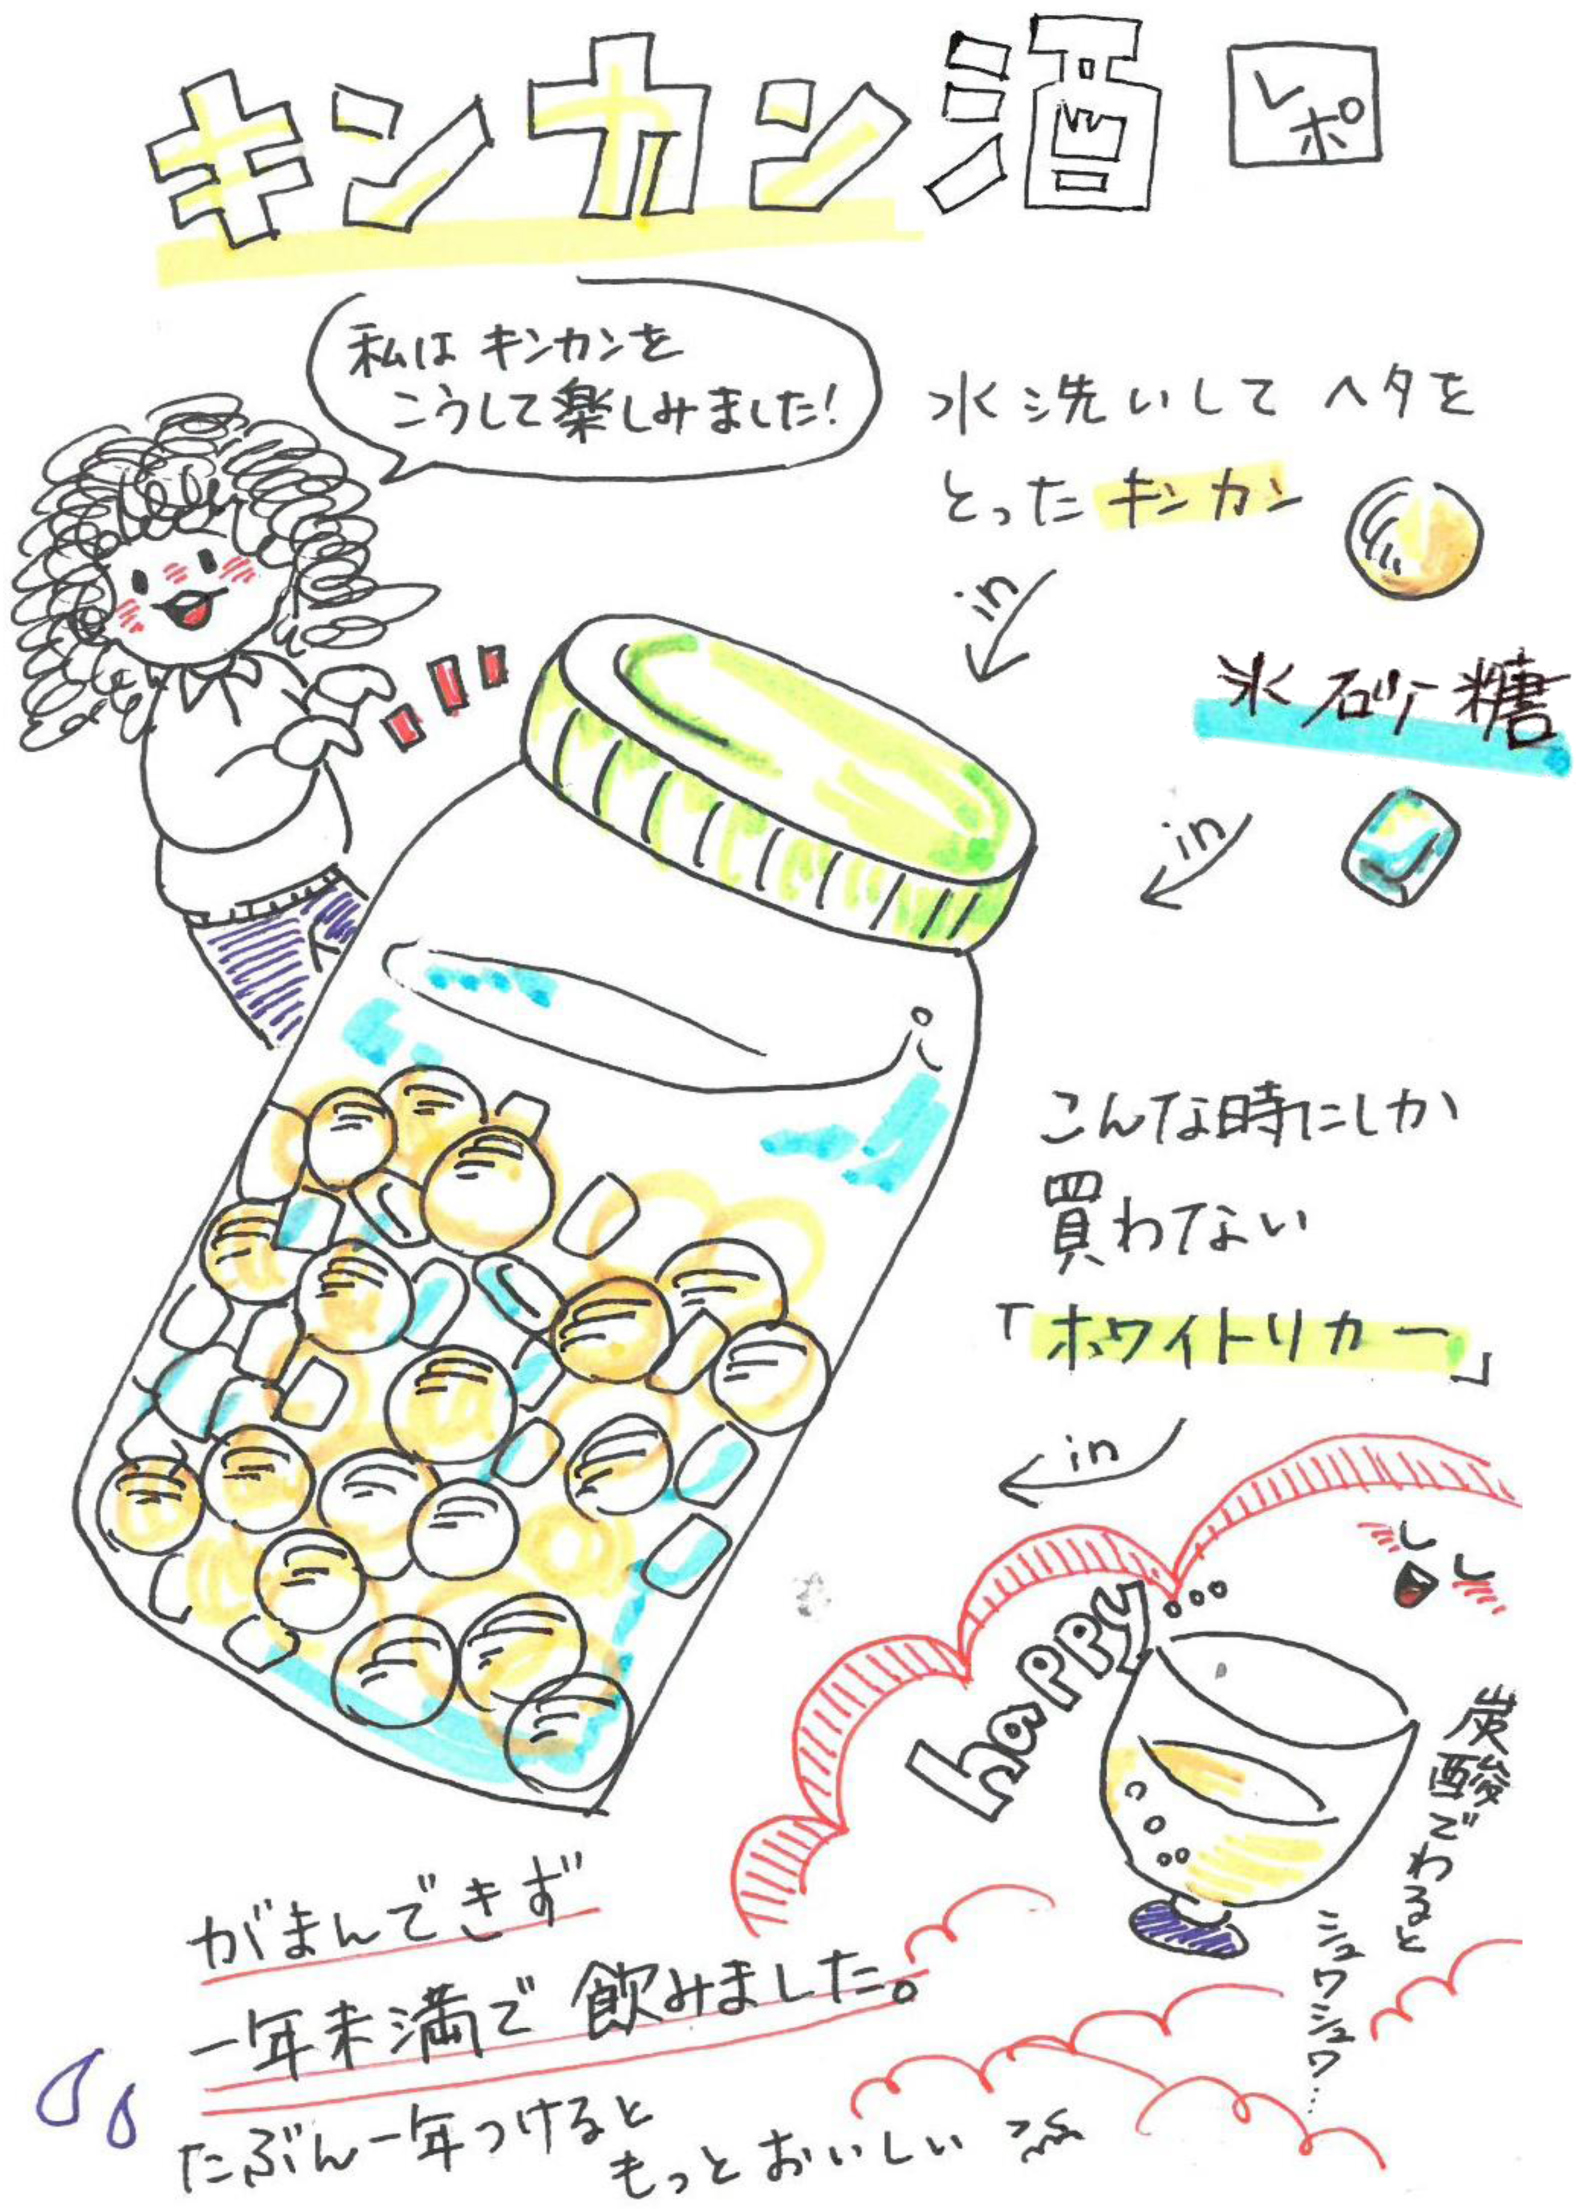 キンカン酒 レポ
私はキンカンを
こうして楽しみました!
水洗いしてヘタを
とったキンカン
in
氷砂糖
in
こんな時にしか
買わない
「ホワイトリカー」
in
happy...
炭酸でわると
シュワシュワ...
がまんできず
一年未満で飲みました。
たぶん一年つけると
もっとおいしい